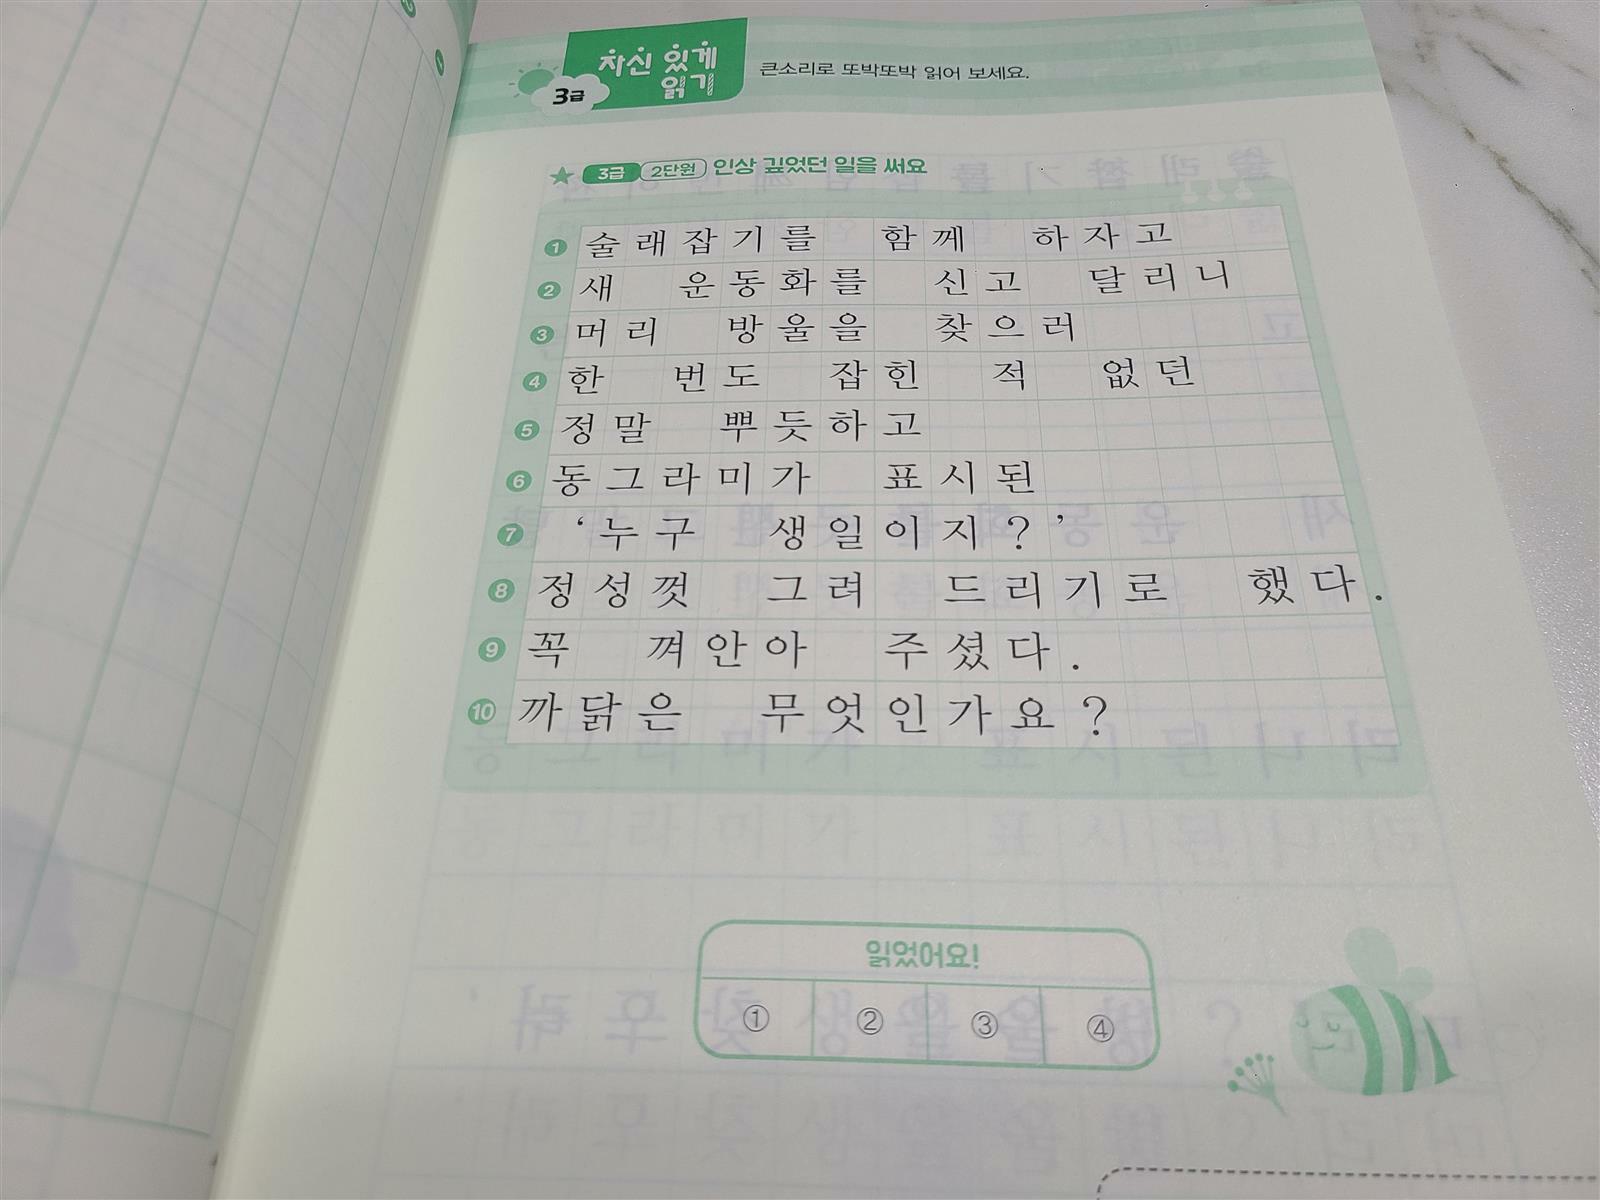 자신 있게
읽기
3급
큰소리로 또박또박 읽어 보세요.
★ 3급 2단원 인상 깊었던 일을 써요
1 술래잡기를 함께 하자고
2 새 운동화를 신고 달리니
3 머리 방울을 찾으러
4 한 번도 잡힌 적 없던
5 정말 뿌듯하고
6 동그라미가 표시된
7 ‘누구 생일이지?’
8 정성껏 그려 드리기로 했다.
9 꼭 껴안아 주셨다.
10 까닭은 무엇인가요?
읽었어요!
① ② ③ ④